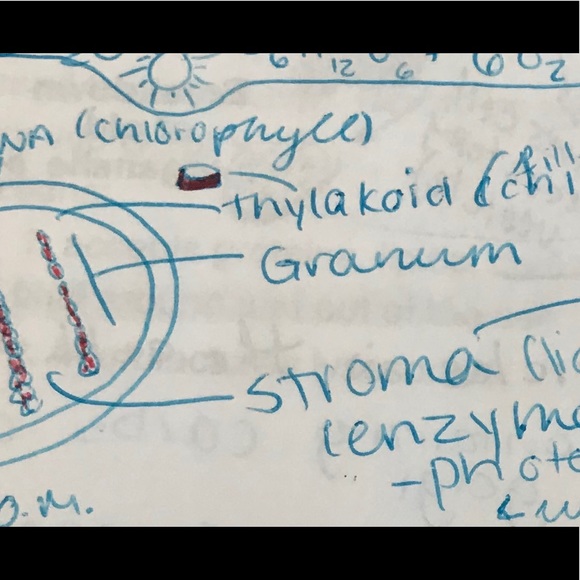 6 12 6 + 6O2
NA (chlorophyll)
thylakoid (fill
chl
Granum
Stroma (liq
(enzyme
-photo
o.m.